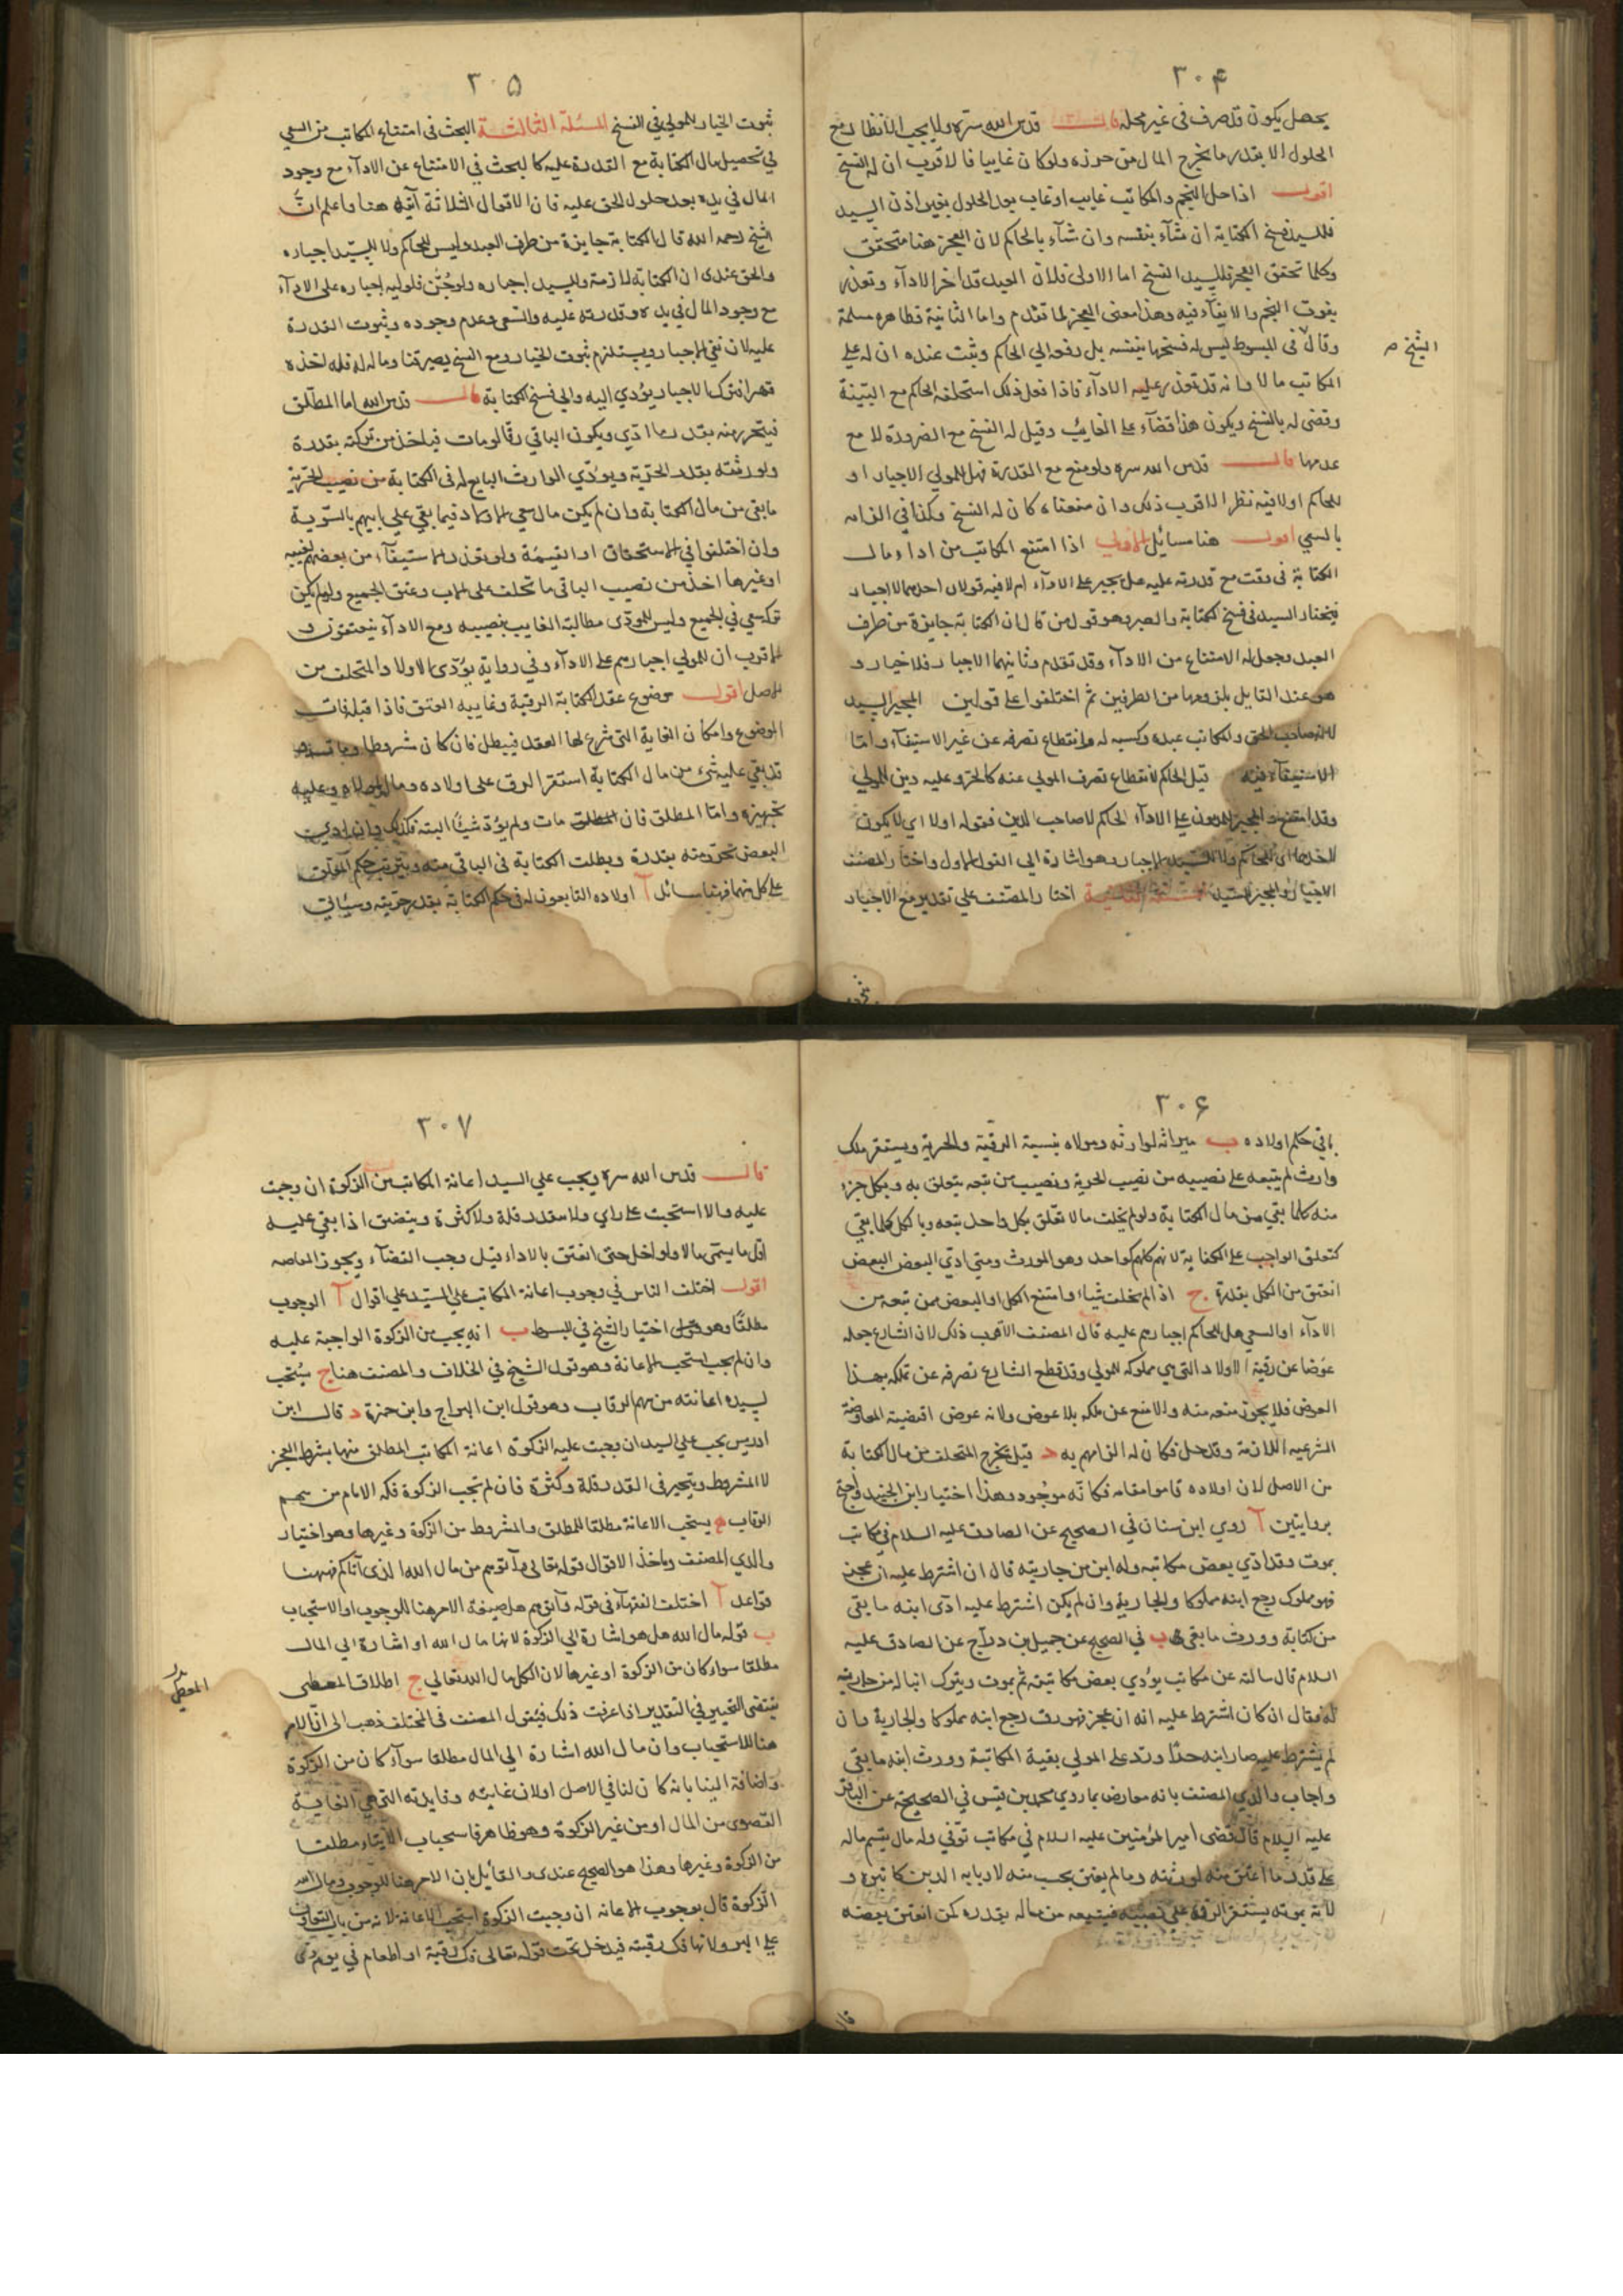 ٣٠۴
يحصل يكون قد صرف في غير محله قال قدس الله سره ولا يجب الانتظار مع
الحلول الا بقدر ما يخرج المال من حرزه ولو كان غايبا فالاقرب ان له الفسخ
اقول اذا حل النجم والمكاتب غايب او غاب بعد الحلول بغير اذن السيد
فللسيد فسخ الكتابة ان شآء بنفسه وان شآء بالحاكم لان العجز هنا متحقق
وكلما تحقق العجز فللسيد الفسخ اما الاولى فلان العبد قد اخر الادآء وتعذر
بفوت النجم والايفآء فيه وهذا معنى العجز لما تقدم واما الثانية فظاهره مسلمة
وقال في المبسوط ليس له فسخها بنفسه بل رفعه الي الحاكم ويثبت عنده ان له علي
الشيخ م
المكاتب مالا وانه قد تعذر عليه الادآء فاذا فعل ذلك استحلفه الحاكم مع البينة
وقضى له بالفسخ ويكون هذا قضآء على الغايب وقيل له الفسخ مع الضرورة لا مع
عدمها قال قدس الله سره ولو منع مع القدرة فهل للمولي الاجبار او
للحاكم اولا فيه نظر الاقرب ذلك وان منعناه كان له الفسخ وكذا في الزامه
بالسعي اقول هنا مسائل الاولي اذا امتنع المكاتب من اداء مال
الكتابة في وقت مع قدرته عليه هل يجبر على الادآء ام لا فيه قولان احدهما لا اجبار
فيختار السيد في فسخ الكتابة والصبر وهو قول من قال ان الكتابة جايزة من طرف
العبد وجعل له الامتناع من الادآء وقد تقدم وثانيهما الاجبار فلا خيار و
هو عند القايل بلزومها من الطرفين ثم اختلفوا على قولين المجبر السيد
لانه صاحب الحق والمكاتب عبده وكسبه له وانقطاع تصرفه عن غير الاستيفآء واما
الاستيفآء فيه قيل الحاكم لانقطاع تصرف المولي عنه كالحر وعليه دين للمولي
وقد امتنع والمجبر للمديون علي الادآء الحاكم لا صاحب الدين فقوله اولا اي لا يكون
لاحدهما اي للحاكم ولا للسيد الاجبار وهو اشارة الي القول الاول واختار المصنف
الاجبار والمجبر السيد المسئلة الثانية اختار المصنف علي تقدير منع الاجبار
٣٠۵
ثبوت الخيار للمولي في الفسخ المسئلة الثالثة البحث في امتناع المكاتب من السعي
في تحصيل مال الكتابة مع القدرة عليه كالبحث في الامتناع عن الادآء مع وجود
المال في يده بعد حلول الحق عليه فان الاقوال الثلاثة آتية هنا واعلم ان
الشيخ رحمه الله قال الكتابة جايزة من طرف العبد وليس للحاكم ولا للسيد اجباره
والحق عندى ان الكتابة لازمة وللسيد اجباره ولو جُنّ فلوليه اجباره على الادآء
مع وجود المال في يده وقدرته عليه والسعي وعدم وجوده وثبوت القدرة
عليه لان نفي الاجبار ويستلزم ثبوت الخيار ومع الفسخ يصير قنا وماله له فله اخذه
قهرا فترك الاجبار يؤدي اليه والي فسخ الكتابة قال قدس الله اما المطلق
فيتحرر منه بقدر ما ادّي ويكون الباقي رقا لو مات فياخذ من تركته بقدره
ولورثته بقدر الحرّية ويؤدّي الوارث التابع له في الكتابة من نصيب الحرّية
ما بقى من مال الكتابة وان لم يكن مال سعي الاولاد فيما بقي علي ابيهم بالسّوية
وان اختلفوا في الاستحقاق او القيمة ولو تعذر الاستيفآء من بعضهم لغيبه
او غيرها اخذ من نصيب الباقي ما تخلف على الاب وعتق الجميع ولو لم يكن
تركة سعي في الجميع وليس للمودّى مطالبة الغايب بنصيبه ومع الادآء ينعتقون و
الاقرب ان للمولي اجبارهم على الادآء وفي رواية يؤدّى الاولاد المتخلف من
الاصل اقول موضوع عقد الكتابة الرقبة وغايته العتق فاذا قبله فات
الموضوع وامكان الغاية التي شرع لها العقد فيبطل فان كان مشروطا
قد بقي عليه شئ من مال الكتابة استقر الرق على اولاده وماله لمولاه وعليه
تجهيزه واما المطلق فان مات ولم يؤدّ شيئا البته فكذلك وان ادى
البعض تحرر منه بقدره وبطلت الكتابة في الباقي منه ويترتب حكم
على كل منهما فهنا مسائل آ اولاده التابعون له في حكم الكتابة بقدر حريته وسيأتي
٣٠۶
باقي حكم اولاده ب ميراثه لوارثه ومولاه بنسبة الرقية والحرية ويستقر ملك
وارث لم يتبعه على نصيبه من نصيب الحرية ونصيب من تبعه يتعلق به وبكل جزء
منه كلما بقي من مال الكتابة ولو لم يخلف مالا تعلق بكل واحد تبعه وبالكل كلما بقي
كتعلق الواجب على الكفاية لانهم كلهم كواحد وهو المورث ومتى ادّي البعض البعض
انعتق من الكل بقدره ج اذا لم يخلف شياء وامتنع الكل او البعض ممن تبعه من
الادآء او السعي هل للحاكم اجبارهم عليه قال المصنف الاقرب ذلك لان الشارع جعله
عوضا عن رقية الاولاد التي هي مملوكه للمولي وقد قطع الشارع تصرفه عن تملكه بهذا
العوض فلا يجوز منعه منه والا منع عن ملكه بلا عوض ولانه عوض اقتضته المعاوضة
الشرعيه اللازمة وقد حل فكان له الزامهم به د قيل يخرج المتخلف من مال الكتابة
من الاصل لان اولاده قاموا مقامه فكانّه موجود وهذا اختيار ابن الجنيد واحتج
بروايتين آ روي ابن سنان في الصحيح عن الصادق عليه السلام في مكاتب
يموت وقد ادّي بعض مكاتبه وله ابن من جاريته قال ان اشترط عليه ان عجز
فهو مملوك رجع ابنه مملوكا والجارية وان لم يكن اشترط عليه ادّى ابنه ما بقى
من كتابة وورث ما بقى ب في الصحيح عن جميل بن درّاج عن الصادق عليه
السلام قال سالته عن مكاتب يؤدي بعض مكاتبته ثم يموت ويترك ابنا له من جاريته
له فقال ان كان اشترط عليه انه ان عجز فهو رق رجع ابنه مملوكا والجارية وان
لم يشترط عليه صار ابنه حرّا وردّ على المولي بقية المكاتبة وورث ابنه ما بقى
واجاب والدي المصنف بانه معارض بما روي محمد بن قيس في الصحيح عن الباقر
عليه السلام قال قضى امير المؤمنين عليه السلام في مكاتب توّفي وله مال يقسم ماله
على قدر ما اعتق منه لورثته وما لم يعتق يحسب منه لاربابه الذين كاتبوه و
لانه بموته يستقر الرق على نصيبه فيتبعه من ماله بقدره كمن انعتق بعضه
٣٠٧
قال قدس الله سره ويجب علي السيد اعانة المكاتب من الزكوة ان وجبت
عليه والا استحبت على راي ولا يتقدر قلة ولا كثرة ويتضيق اذا بقي عليه
اقل ما يسمّى مالا ولو اخل حتى انعتق بالاداء قيل وجب القضآء ويجوز المقاصه
اقول اختلف الناس في وجوب اعانة المكاتب علي السيّد علي اقوال آ الوجوب
مطلقًا وهو اختيار الشيخ في المبسوط ب انه يجب من الزكوة الواجبة عليه
وان لم يجب استحب الاعانة وهو قول الشيخ في الخلاف والمصنف هنا ج يُستحب
لسيده اعانته من سهم الرقاب وهو قول ابن البراج وابن حمزة د قال ابن
ادريس يجب علي السيد ان وجبت عليه الزكوة اعانة المكاتب المطلق منها بشرط العجز
لا المشروط ويتخير في القدر قلة وكثرة فان لم تجب الزكوة فكه الامام من سهم
الرقاب ه يستحب الاعانة مطلقا للمطلق والمشروط من الزكوة وغيرها وهو اختيار
والدي المصنف وماخذ الاقوال قوله تعالى وآتوهم من مال الله الذى آتاكم فههنا
قواعد آ اختلف الفقهآء في قوله وآتوهم هل صيغة الامر هنا للوجوب او الاستحباب
ب قوله مال الله هل هو اشارة الي الزكوة لانها مال الله او اشارة الي المال
مطلقا سواء كان من الزكوة او غيرها لان الكل مال الله تعالي ج اطلاق المعطى
المعطى
يقتضى التخيير في التقدير اذا عرفت ذلك فنقول المصنف في المختلف ذهب الى ان الامر
هنا للاستحباب وان مال الله اشارة الي المال مطلقا سوآء كان من الزكوة
واضافة الينا بانه كان لنا في الاصل اولان غايته وفايدته التي هي الغاية
القصوى من المال او من غير الزكوة وهو ظاهر فاستحباب الايتاء مطلقا
من الزكوة وغيرها وهذا هو الصحيح عندى والقائل بان الامر هنا للوجوب ومال الله
الزكوة قال بوجوب الاعانه ان وجبت الزكوة استحب الاعانة لانه من باب التعاون
علي البر ولانها فك رقبته فيدخل تحت قوله تعالى فك رقبة او اطعام في يوم ذى